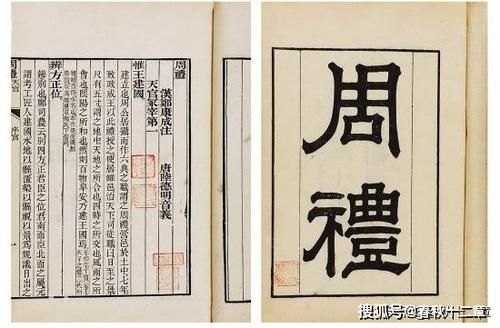 周禮
漢鄭康成注 唐陸德明音義
天官冢宰第一
惟王建國
建立也周公居攝而作六典之職謂之周禮營邑於土中七年
致政成王以此禮授之使居雒邑治天下司徒職曰日至之景
尺有五寸謂之地中天地之所合也四時之所交也風雨之所
會也陰陽之所和也然則百物阜安乃建王國焉
辨方正位
辨別也鄭司農云別四方正君臣之位君南面臣北面之屬
謂考工匠人建國水地以縣置槷以縣眡以景為規識日出之
周禮 天官 序官 一
周禮
搜狐号@春秋十二章